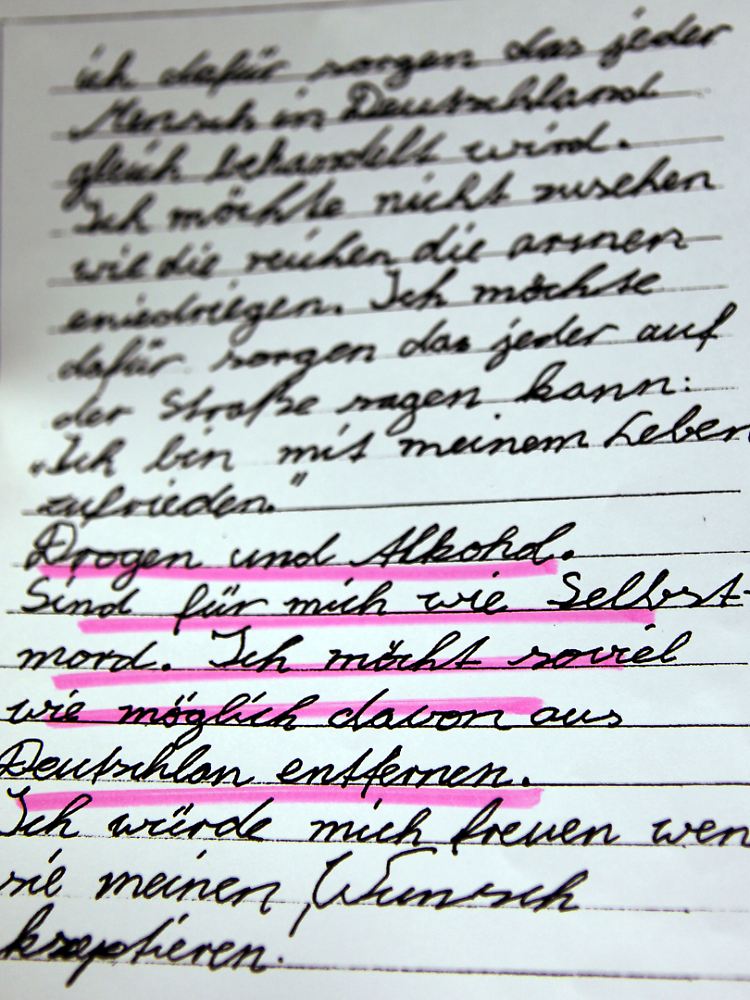 ich dafür sorgen das jeder
Mensch in Deutschland
gleich behandelt wird.
Ich möchte nicht zusehen
wie die reichen die armen
eniedriegen. Ich möchte
dafür sorgen das jeder auf
der Straße sagen kann:
„Ich bin mit meinem Leben
zufrieden."
Drogen und Alkohol.
Sind für mich wie Selbst-
mord. Ich möcht soviel
wie möglich davon aus
Deutschlan entfernen.
Ich würde mich freuen wen
sie meinen Wunsch
kzeptieren.